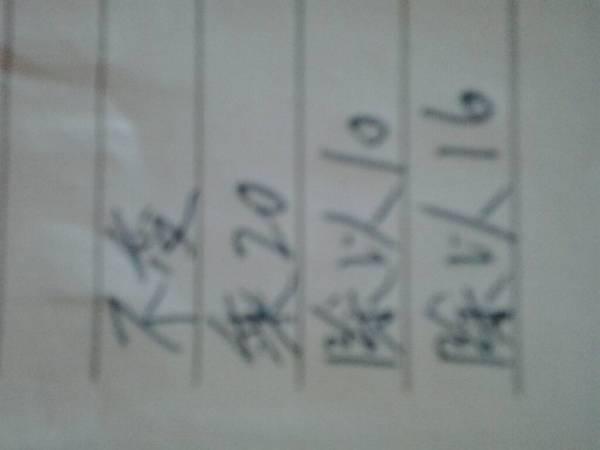 不变
乘20
除以10
除以16